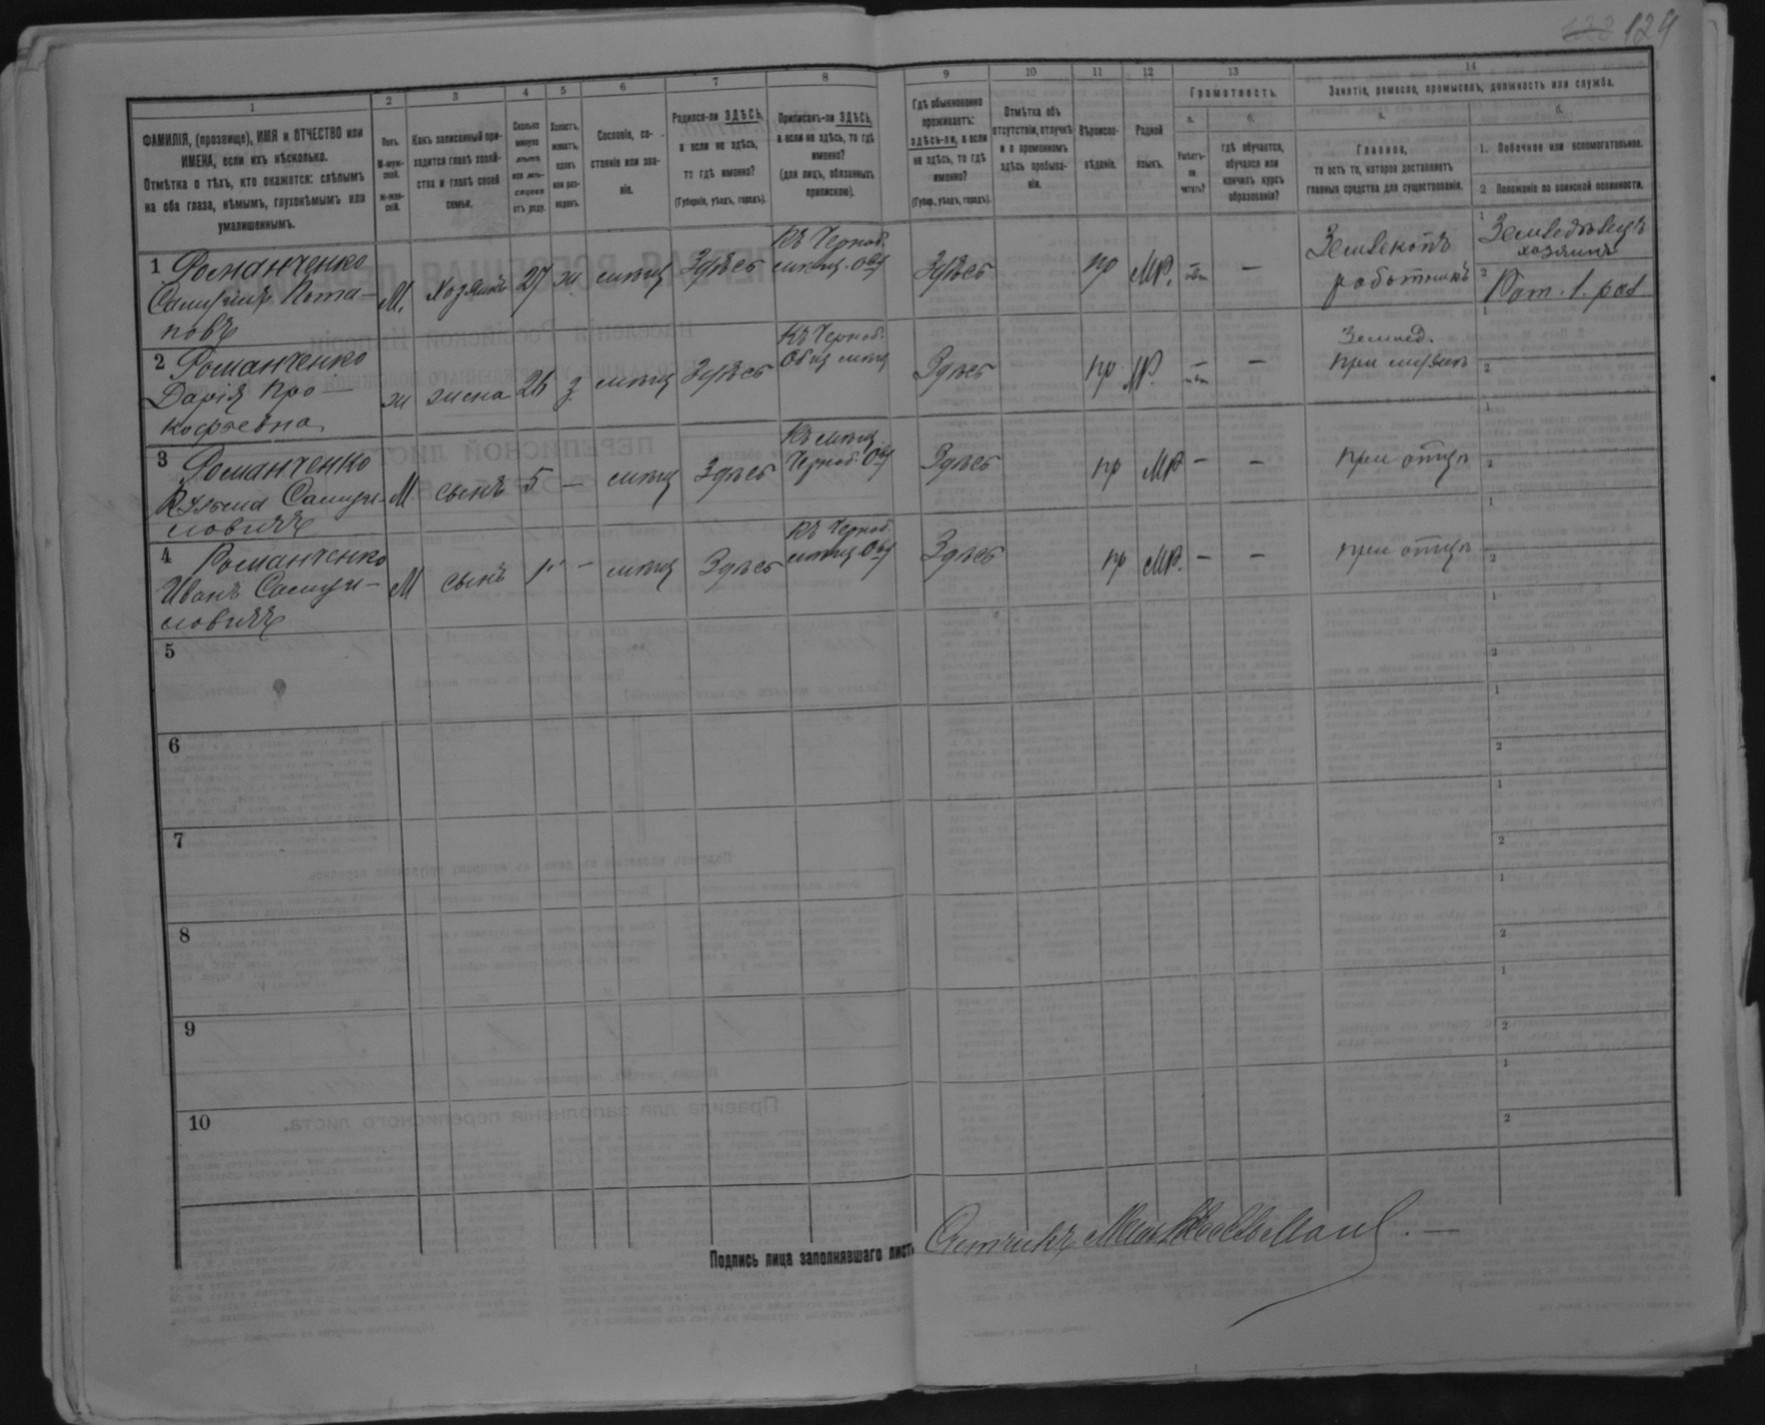 124
1 2 3 4 5 6 7 8 9 10 11 12 13 14
ФАМИЛІЯ, (прозвище), ИМЯ и ОТЧЕСТВО или
ИМЕНА, если ихъ нѣсколько.
Отмѣтка о тѣхъ, кто окажется: слѣпымъ
на оба глаза, нѣмымъ, глухонѣмымъ или
умалишеннымъ.
Полъ.
М-муж-
ской.
Ж-жен-
скій.
Какъ записанный при-
ходится главѣ хозяй-
ства и главѣ своей
семьи.
Сколько
минуло
лѣтъ
или мѣ-
сяцевъ
отъ роду.
Холостъ,
женатъ,
вдовъ
или раз-
веденъ.
Сословіе, со-
стояніе или зва-
ніе.
Родился-ли ЗДѢСЬ,
а если не здѣсь,
то гдѣ именно?
(Губернія, уѣздъ, городъ).
Приписанъ-ли ЗДѢСЬ,
а если не здѣсь, то гдѣ
именно?
(для лицъ, обязанныхъ
припискою).
Гдѣ обыкновенно
проживаетъ:
здѣсь-ли, а если
не здѣсь, то гдѣ
именно?
(Губер., уѣздъ, городъ).
Отмѣтка объ
отсутствіи, отлучкѣ
и о временномъ
здѣсь пребыва-
ніи.
Вѣроиспо-
вѣданіе.
Родной
языкъ.
Грамотность.
а.
Умѣетъ-
ли
читать?
б.
гдѣ обучается,
обучался или
кончилъ курсъ
образованія?
Занятіе, ремесло, промыселъ, должность или служба.
а.
Главное,
то есть то, которое доставляетъ
главныя средства для существованія.
б.
1. Побочное или вспомогательное.
2. Положеніе по воинской повинности.
1 Романченко
Самуилъ Пота-
повъ
М. Хозяинъ 27 ж мѣщ Здѣсь
Къ Черноб.
мѣщ. Общ
Здѣсь пр МР. нѣт —
работникъ
1
хозяинъ
2 Рат. 1. раз
2 Романченко
Дарія Про-
кофьевна
ж жена 26 з мѣщ Здѣсь
Къ Черноб.
Общ мѣщ
Здѣсь пр МР. нѣт —
Землед.
при мужѣ
1
2
3 Романченко
Кузьма Самуи-
ловичъ
М сынъ 5 — мѣщ Здѣсь
Къ мѣщ
Черноб. Общ
Здѣсь пр МР — —
при отцѣ
1
2
4 Романченко
Иванъ Самуи-
ловичъ
М сынъ — мѣщ Здѣсь
Къ Черноб.
мѣщ Общ
Здѣсь пр МР. — —
при отцѣ
1
2
5
1
2
6
1
2
7
1
2
8
1
2
9
1
2
10
1
2
Подпись лица заполнявшаго листъ